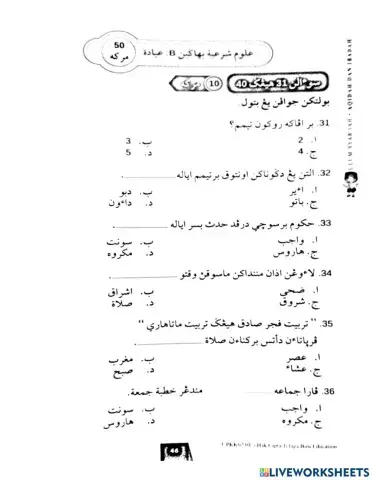 50
مركه
علوم شرعية بهاڬين B: عبادة
سوءالن 31 هيڠڬ 40
10
بولتكن جواڤن يڠ بتول
31. براڤاكه روكون تيمم؟
ا. 2
ب. 3
ج. 4
د. 5
32. التن يڠ دڬوناكن اونتوق برتيمم اياله ........
ا. اءير
ب. دبو
ج. باتو
د. داءون
33. حكوم برسوچي درڤد حدث بسر اياله ........
ا. واجب
ب. سونت
ج. هاروس
د. مكروه
34. لاءوڠن اذان مننداكن ماسوقن وقتو ........
ا. ضحى
ب. اشراق
ج. شروق
د. صلاة
35. " تربيت فجر صادق هيڠڬ تربيت متاهاري "
ڤرڽاتاءن دأتس بركناءن صلاة ........
ا. عصر
ب. مغرب
ج. عشاء
د. صبح
36. ڤارا جماعه ........ مندڠر خطبة جمعة.
ا. واجب
ب. سونت
ج. مكروه
د. هاروس
AQIDAH DAN IBADAH
LIVEWORKSHEETS